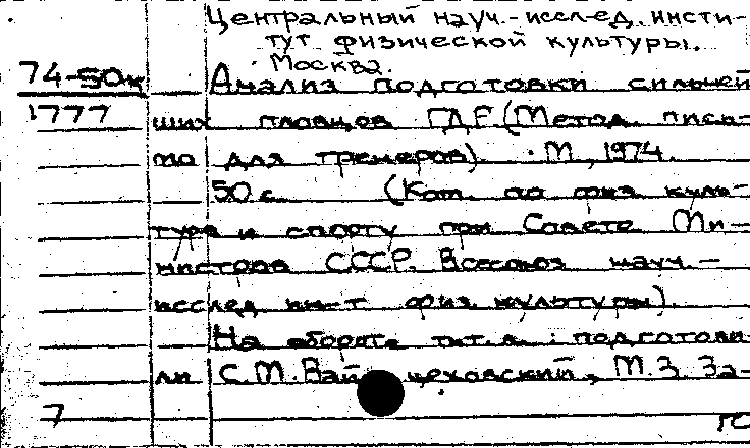 Центральный науч.-исслед. инсти-
тут физической культуры.
Москва.
74-50к
1777
Анализ подготовки сильней
ших пловцов ГДР (Метод. пись-
мо для тренеров). М., 1974.
50 с. (Ком. по физ. куль-
туре и спорту при Совете Ми-
нистров СССР. Всесоюз науч.-
исслед ин-т физ. культуры).
На обороте тит. л.: подготови
ли С.М. Вай цеховский, М.З. За-
7